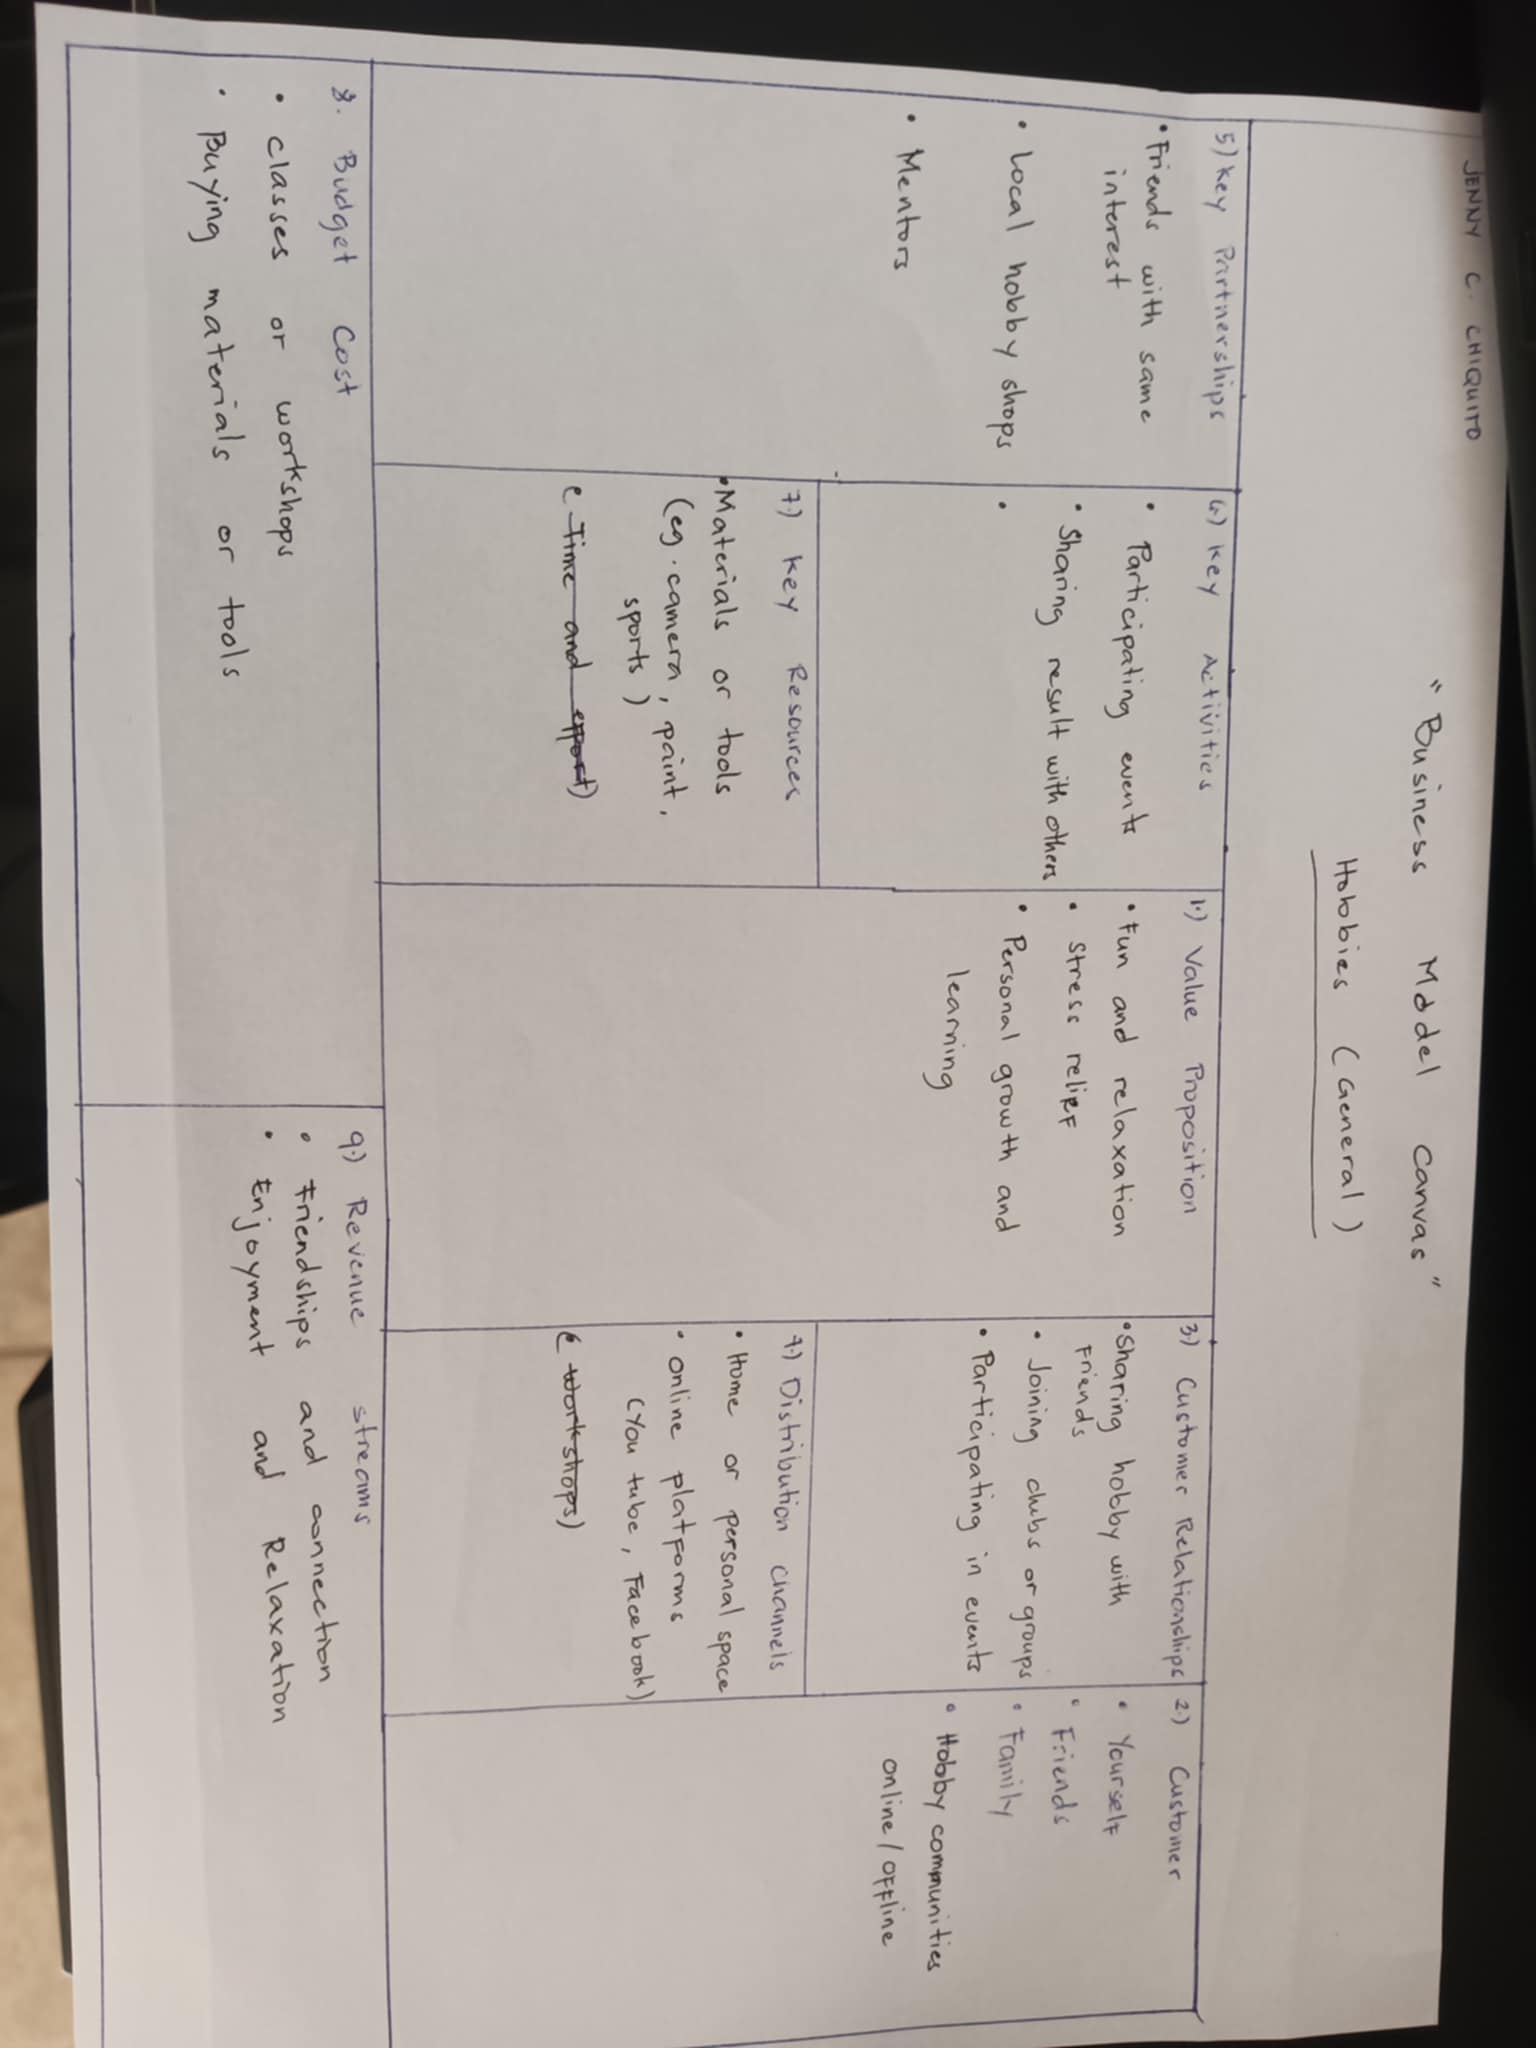 JENNY C. CHIQUITO
"Business Model Canvas"
Hobbies (General)
5) Key Partnerships
• Friends with same
interest
• Local hobby shops
• Mentors
6.) Key Activities
• Participating events
• Sharing result with others
•
7.) Key Resources
• Materials or tools
(eg. camera, paint,
sports)
Time and effort)
1.) Value Proposition
• Fun and relaxation
• Stress relief
• Personal growth and
learning
3.) Customer Relationships
• Sharing hobby with
Friends
• Joining clubs or groups
• Participating in events
4.) Distribution Channels
• Home or personal space
• Online platforms
(You tube, Facebook)
(workshops)
2.) Customer
• Yourself
• Friends
• Family
• Hobby communities
online/offline
8. Budget Cost
• classes or workshops
• Buying materials or tools
9.) Revenue streams
• Friendships and connection
• Enjoyment and Relaxation